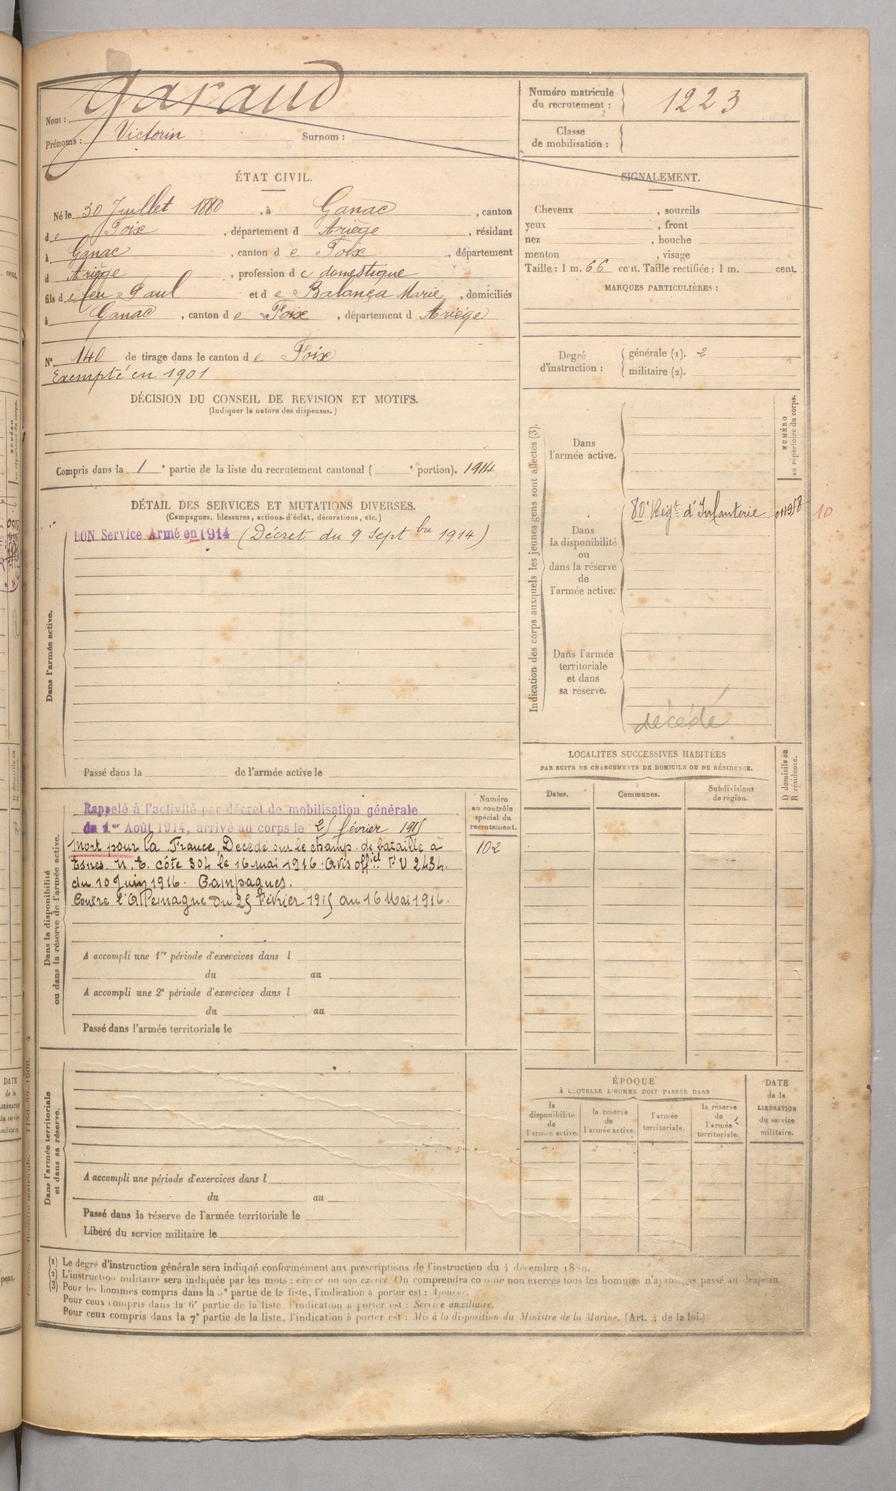 Nom : Garaud
Prénoms : Victorin Surnom :
Numéro matricule du recrutement : 1223
Classe de mobilisation :
ÉTAT CIVIL.
Né le 30 Juillet 1880, à Ganac, canton
de Foix, département d Ariège, résidant
à Ganac, canton de Foix, département
d Ariège, profession de domestique
fils de feu Paul et de Balança Marie, domiciliés
à Ganac, canton de Foix, département d Ariège
N° 140 de tirage dans le canton de Foix
Exempté en 1901
DÉCISION DU CONSEIL DE REVISION ET MOTIFS.
(Indiquer la nature des dispenses.)
Compris dans la 1e partie de la liste du recrutement cantonal ( e portion). 1914
SIGNALEMENT.
Cheveux , sourcils
yeux , front
nez , bouche
menton , visage
Taille : 1 m. 66 cent. Taille rectifiée : 1 m. cent.
MARQUES PARTICULIÈRES :
Degré d'instruction : générale (1). 2
militaire (2).
DÉTAIL DES SERVICES ET MUTATIONS DIVERSES.
(Campagnes, blessures, actions d'éclat, décorations, etc.)
Dans l'armée active.
BON Service Armé en 1914 (Décret du 9 Septbre 1914)
Passé dans la de l'armée active le
Indication des corps auxquels les jeunes gens sont affectés (3).
NUMÉRO au répertoire du corps.
Dans l'armée active.
Dans la disponibilité ou dans la réserve de l'armée active.
80e Régt d'Infanterie 10
Dans l'armée territoriale et dans sa réserve.
décédé
Dans la disponibilité ou dans la réserve de l'armée active.
Numéro au contrôle spécial du recrutement.
102
Rappelé à l'activité par décret de mobilisation générale
du 1er Août 1914, arrivé au corps le 25 février 1915
Mort pour la France, Décédé sur le champ de bataille à
Esnes. N. E. côte 304 le 16 mai 1916. Avis officl F U 2434.
du 10 Juin 1916. Campagnes.
Contre l'Allemagne du 25 Février 1915 au 16 Mai 1916.
A accompli une 1re période d'exercices dans l
du au
A accompli une 2e période d'exercices dans l
du au
Passé dans l'armée territoriale le
LOCALITÉS SUCCESSIVES HABITÉES
PAR SUITE DE CHANGEMENTS DE DOMICILE OU DE RÉSIDENCE.
Dates. Communes. Subdivisions de région. D domicile ou R résidence.
Dans l'armée territoriale et dans sa réserve.
A accompli une période d'exercices dans l
du au
Passé dans la réserve de l'armée territoriale le
Libéré du service militaire le
ÉPOQUE
À LAQUELLE L'HOMME DOIT PASSER DANS
la disponibilité de l'armée active.
la réserve de l'armée active.
l'armée territoriale.
la réserve de l'armée territoriale.
DATE de la LIBÉRATION du service militaire.
(1) Le degré d'instruction générale sera indiqué conformément aux prescriptions de l'instruction du 4 décembre 1889.
(2) L'instruction militaire sera indiquée par les mots : exercé ou non exercé. On comprendra comme non exercés tous les hommes n'ayant pas passé au drapeau.
(3) Pour les hommes compris dans la 5e partie de la liste, l'indication à porter est : Ajourné.
Pour ceux compris dans la 6e partie de la liste, l'indication à porter est : Service auxiliaire.
Pour ceux compris dans la 7e partie de la liste, l'indication à porter est : Mis à la disposition du Ministre de la Marine. (Art. 4 de la loi.)